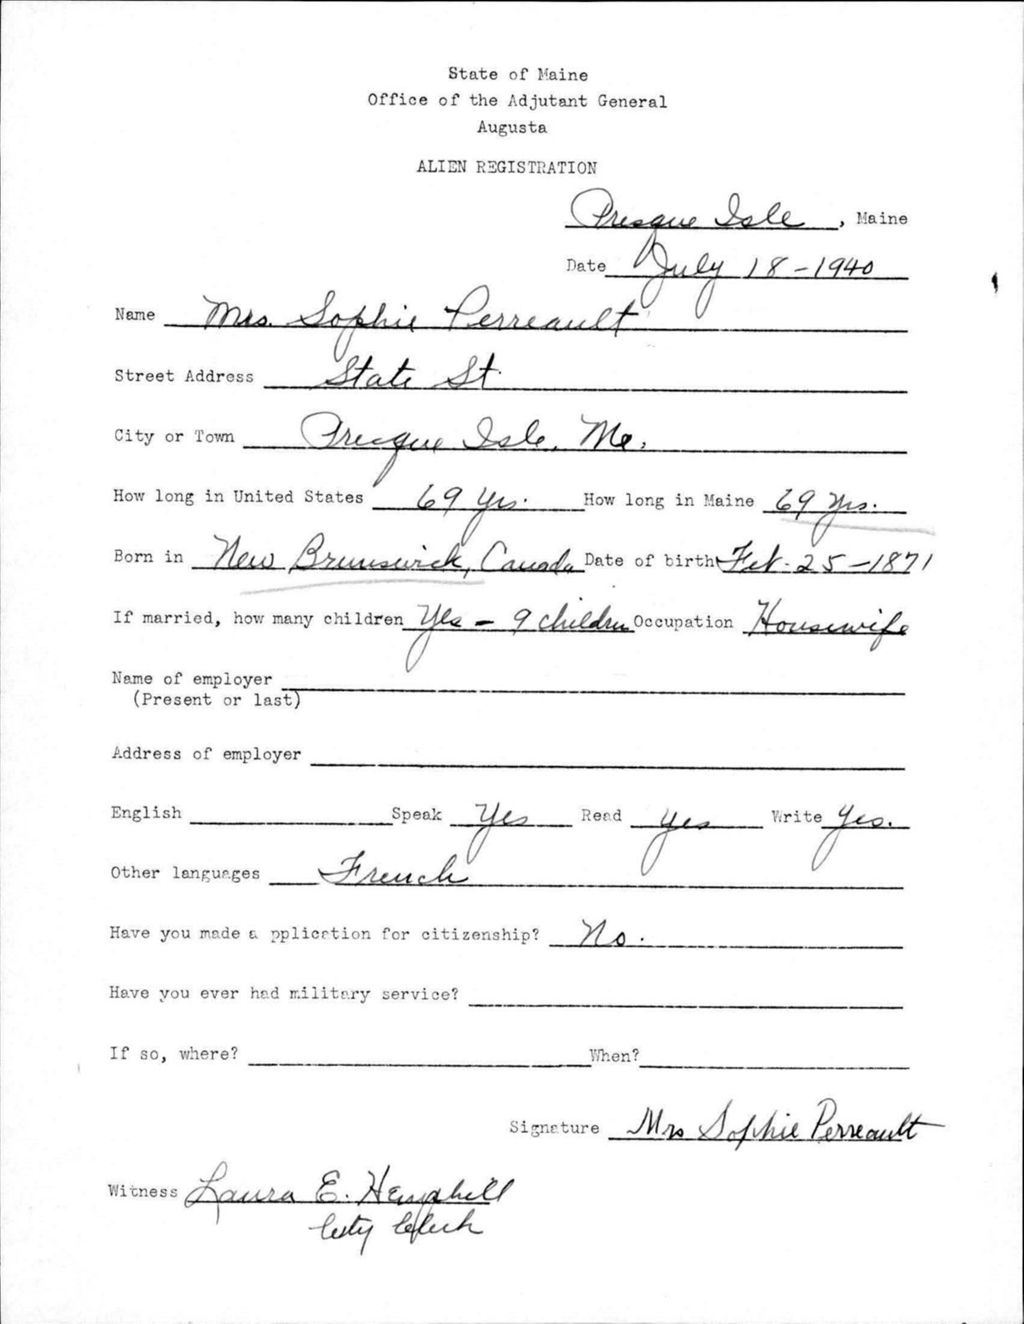 State of Maine
Office of the Adjutant General
Augusta
ALIEN REGISTRATION
Presque Isle, Maine
Date July 18-1940
Name Mrs. Sophie Perreault
Street Address State St.
City or Town Presque Isle, Me.
How long in United States 69 yrs. How long in Maine 69 yrs.
Born in New Brunswick, Canada Date of birth Feb. 25-1871
If married, how many children Yes - 9 children Occupation Housewife
Name of employer
(Present or last)
Address of employer
English Speak Yes Read yes Write Yes.
Other languages French
Have you made a pplication for citizenship? No.
Have you ever had military service?
If so, where? When?
Signature Mrs Sophie Perreault
Witness Laura E. Hemphill
City Clerk